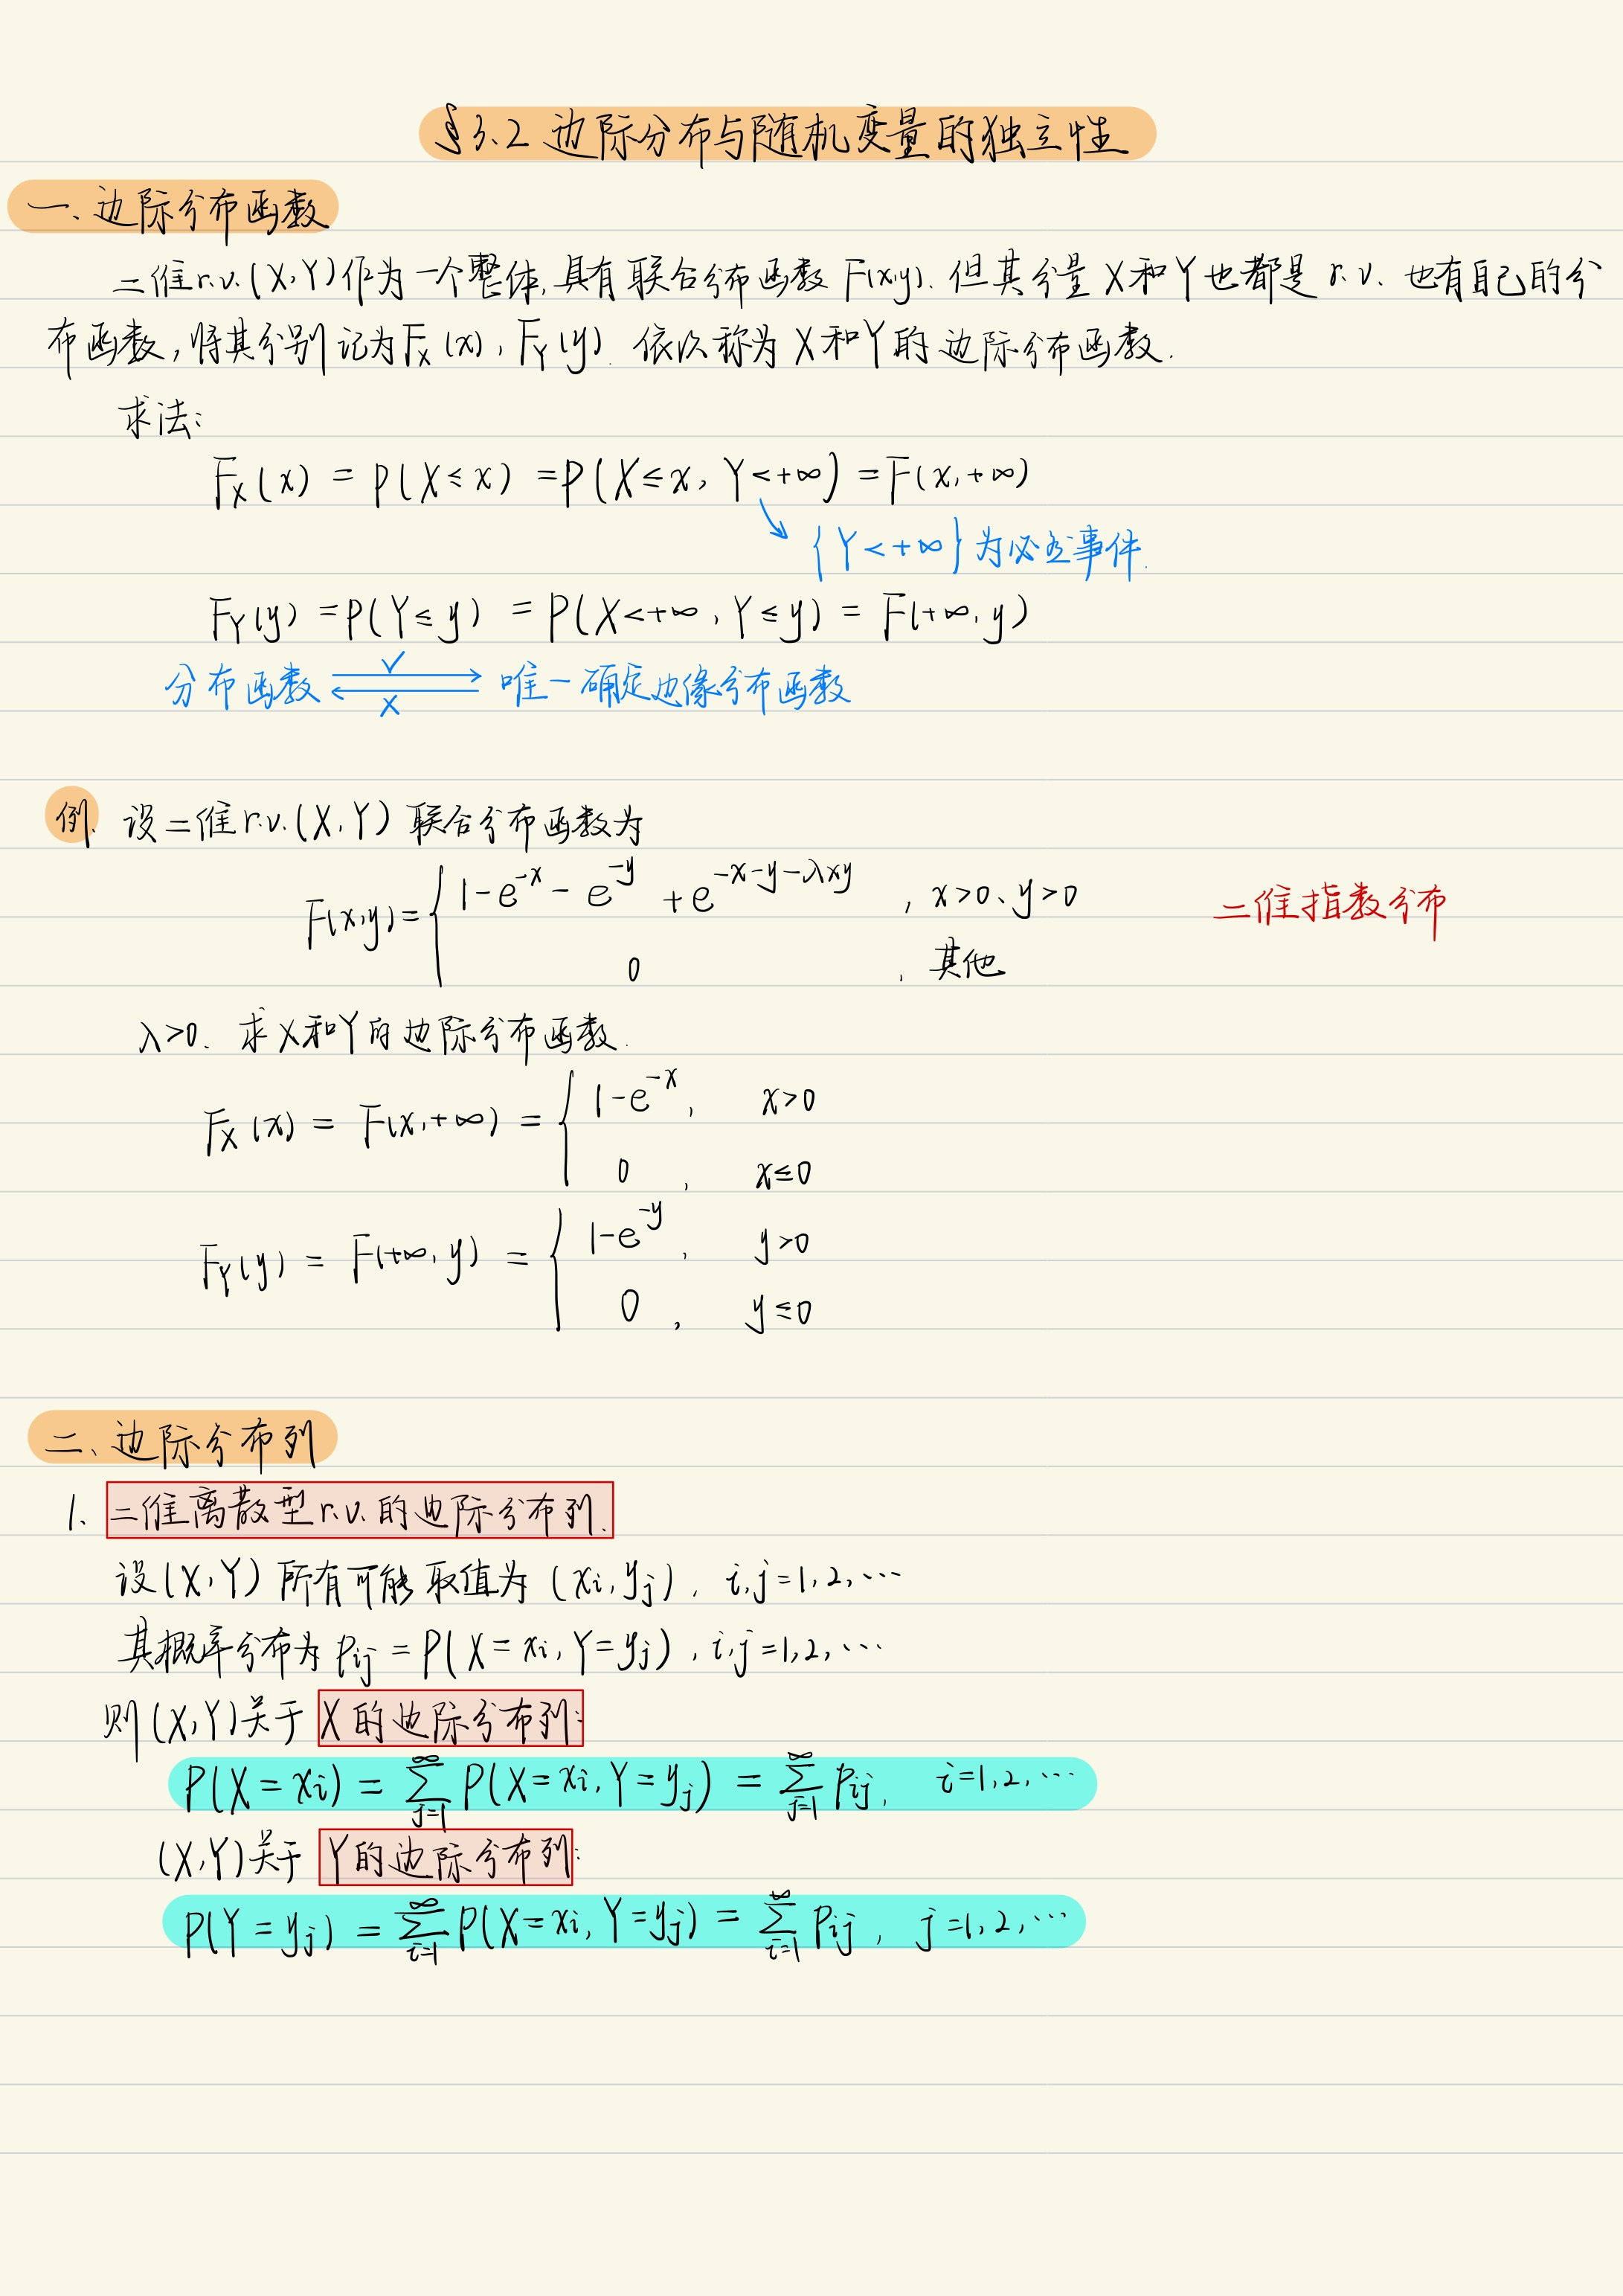 §3.2 边际分布与随机变量的独立性
一、边际分布函数
二维r.v.(X,Y)作为一个整体,具有联合分布函数 F(x,y). 但其分量 X和Y也都是 r.v. 也有自己的分
布函数,将其分别记为F_X(x), F_Y(y). 依次称为 X和Y的边际分布函数.
求法:
F_X(x) = P(X≤x) = P(X≤x, Y<+∞) = F(x,+∞)
{Y<+∞}为必然事件.
F_Y(y) = P(Y≤y) = P(X<+∞, Y≤y) = F(+∞,y)
分布函数 ⇄ 唯一确定边缘分布函数
√
×
例. 设二维r.v.(X,Y) 联合分布函数为
F(x,y) = { 1-e^{-x} - e^{-y} + e^{-x-y-λxy} , x>0、y>0 二维指数分布
0 , 其他
λ>0. 求X和Y的边际分布函数.
F_X(x) = F(x,+∞) = { 1-e^{-x}, x>0
0 , x≤0
F_Y(y) = F(+∞,y) = { 1-e^{-y}, y>0
0 , y≤0
二、边际分布列
1、二维离散型r.v.的边际分布列.
设(X,Y) 所有可能取值为 (x_i,y_j), i,j=1,2,…
其概率分布为 p_{ij} = P(X=x_i, Y=y_j), i,j=1,2,…
则(X,Y)关于 X的边际分布列:
P(X=x_i) = ∑_{j=1}^{∞} P(X=x_i, Y=y_j) = ∑_{j=1}^{∞} p_{ij}, i=1,2,…
(X,Y)关于 Y的边际分布列:
P(Y=y_j) = ∑_{i=1}^{∞} P(X=x_i, Y=y_j) = ∑_{i=1}^{∞} p_{ij}, j=1,2,…